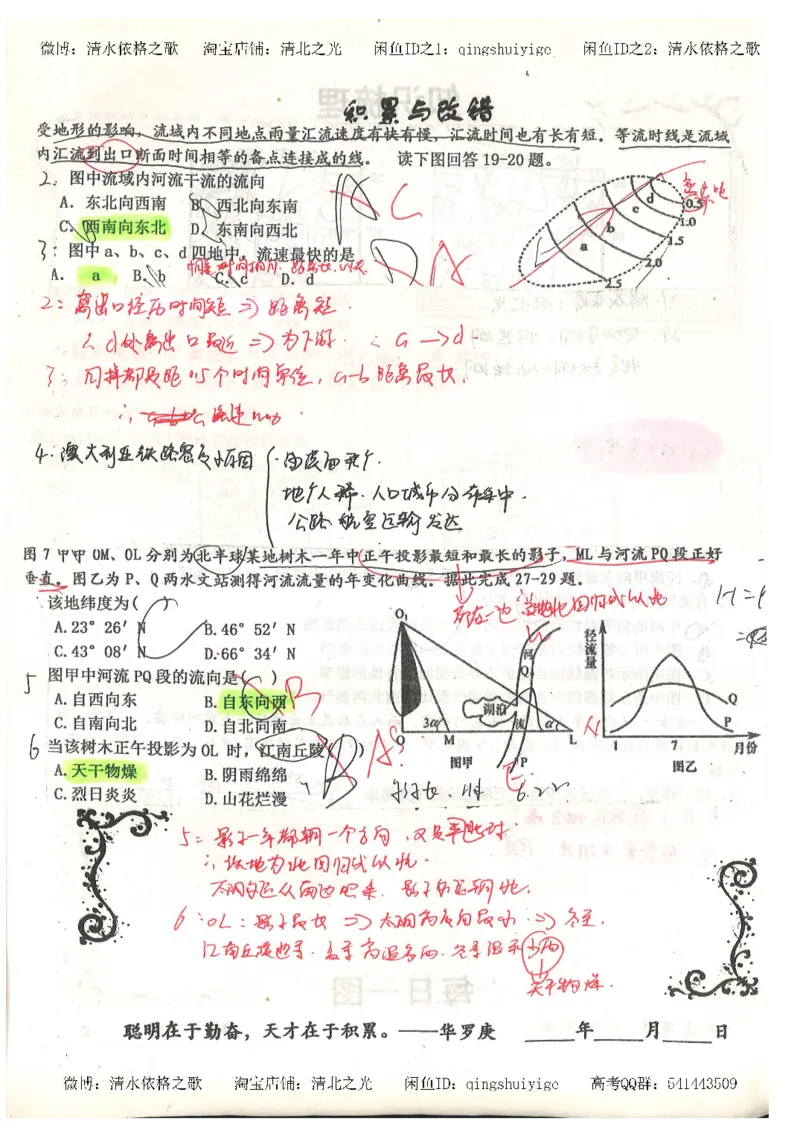 微博：清水依格之歌 淘宝店铺：清北之光 闲鱼ID之1：qingshuiyige 闲鱼ID之2：清水依格之歌
积累与改错
受地形的影响，流域内不同地点雨量汇流速度有快有慢，汇流时间也有长有短．等流时线是流域
内汇流到出口断面时间相等的各点连接成的线。 读下图回答 19-20 题。
2. 图中流域内河流干流的流向
A．东北向西南 B．西北向东南
C．西南向东北 D．东南向西北
A C
3: 图中 a、b、c、d 四地中，流速最快的是
A． a B．b C．c D．d
D A
a b c d 0.5 1.0 1.5 2.0 2.5
2: 离出口经历时间短 ⇒ 距离短．
∴ d处离出口最近 ⇒ 为下游． ∴ a → d
3: 同样都是距 0.5个时间单位，a-b 距离最长，
4. 澳大利亚铁路
地广人稀．人口城市分布集中．
公路．航空运输发达
图 7 甲中 OM、OL 分别为北半球某地树木一年中正午投影最短和最长的影子，ML 与河流 PQ 段正好
垂直。图乙为 P、Q 两水文站测得河流流量的年变化曲线。据此完成 27-29 题．
该地纬度为( )
A.23° 26′ N B.46° 52′ N
C.43° 08′ N D.66° 34′ N
5 图甲中河流 PQ 段的流向是( )
A.自西向东 B.自东向西
C.自南向北 D.自北向南
B
6 当该树木正午投影为 OL 时，江南丘陵( )
A.天干物燥 B.阴雨绵绵
C.烈日炎炎 D.山花烂漫
B A
O₁ 河 Q 湖泊 流 3α α M L P N E
图甲
径流量 1 7 月份 Q P
图乙
6.22
5: 影子一年都朝一个方向．又是北半球
∴ 该地为北回归线以北．
6: OL：影子最长 ⇒ 太阳高度角最小 ⇒ 冬至．
江南丘陵地季．夏季高温多雨．冬季温和少雨
天干物燥．
聪明在于勤奋，天才在于积累。——华罗庚 ____年____月____日
微博：清水依格之歌 淘宝店铺：清北之光 闲鱼ID：qingshuiyige 高考QQ群：541443509